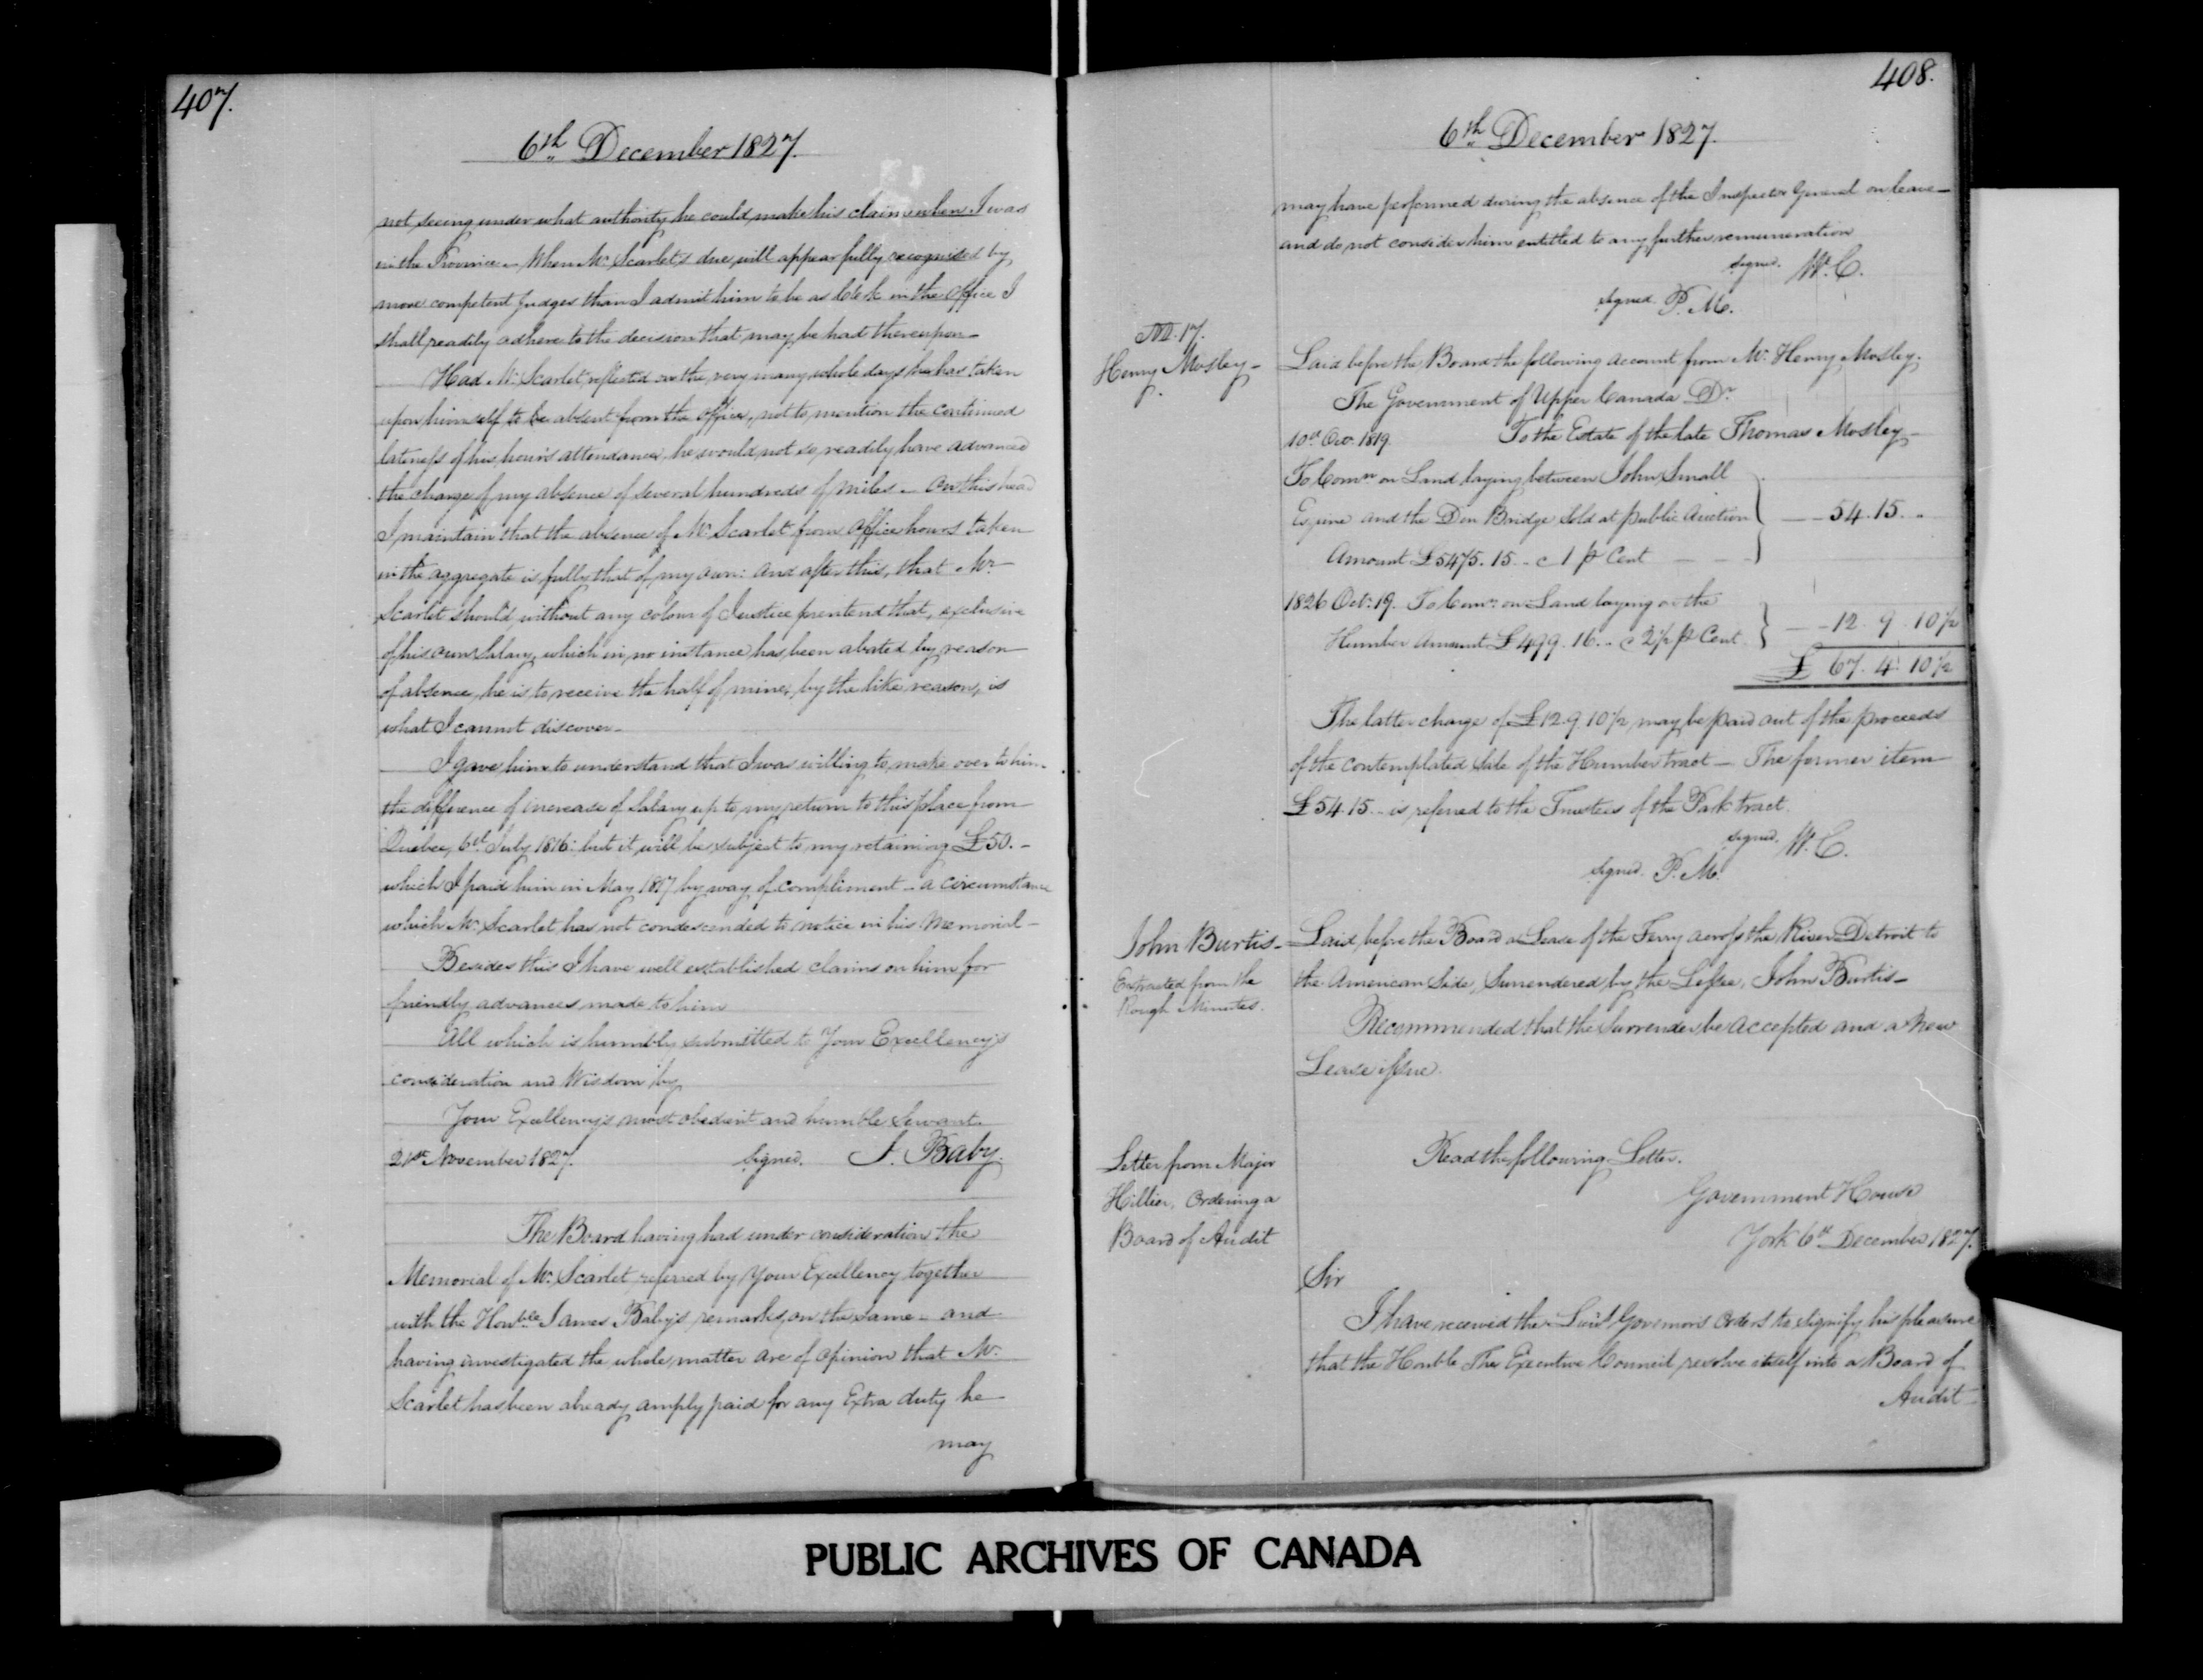 407.
6th December 1827.
not seeing under what authority he could make his claim when I was
in the Province. When Mr. Scarlet's due will appear fully recognised by
more competent Judges than I admit him to be as Clerk in the Office I
shall readily adhere to the decision that may be had thereupon —
Had Mr. Scarlet reflected on the very many whole days he has taken
upon himself to be absent from the office, not to mention the continued
lateness of his hours attendance, he would not so readily have advanced
the charge of my absence of several hundreds of miles — On this head
I maintain that the absence of Mr. Scarlet from Office hours taken
in the aggregate is fully that of my own: and after this, that Mr.
Scarlet should, without any colour of Justice pretend that, exclusive
of his own Salary, which in no instance has been abated by reason
of absence, he is to receive the half of mine, by the like reason, is
what I cannot discover —
I gave him to understand that I was willing to make over to him
the difference of increase of Salary up to my return to this place from
Quebec, 6th July 1816: but it will be subject to my retaining £50. —
which I paid him in May 1817 by way of compliment — a circumstance
which Mr. Scarlet has not condescended to notice in his Memorial —
Besides this I have well established claims on him for
friendly advances made to him
All which is humbly submitted to Your Excellency's
consideration and Wisdom by
Your Excellency's most obedient and humble Servant
21st November 1827. Signed. J. Baby.
The Board having had under consideration the
Memorial of Mr. Scarlet, referred by Your Excellency together
with the Honble James Baby's remarks on the same — and
having investigated the whole matter are of opinion that Mr.
Scarlet has been already amply paid for any Extra duty he
may
408.
6th December 1827.
may have performed during the absence of the Inspector General on leave —
and do not consider him entitled to any further remuneration
signed. W. C.
signed P. M.
No. 17.
Henry Mosley —
Laid before the Board the following account from Mr. Henry Mosley.
The Government of Upper Canada Dr.
10th Oct. 1819. To the Estate of the late Thomas Mosley —
To Comn on Land laying between John Small
Esquire and the Don Bridge Sold at public Auction — — 54. 15. "
Amount £5475. 15 — @ 1 p Cent — — —
1826 Oct. 19. To Comn. on Land laying on the
Humber Amount £499. 16. — @ 2½ p Cent. — — 12. 9. 10½
£ 67. 4. 10½
The latter charge of £12. 9. 10½ may be paid out of the proceeds
of the contemplated Sale of the Humber tract — The former item
£54. 15 — is referred to the Trustees of the Park tract.
signed. W. C.
signed. P. M.
John Burtis —
Extracted from the
Rough Minutes.
Laid before the Board a Lease of the Ferry across the River Detroit to
the American Side, Surrendered by the Lessee, John Burtis —
Recommended that the Surrender be accepted and a New
Lease issue.
Letter from Major
Hillier, Ordering a
Board of Audit
Read the following Letter.
Government House
York 6th December 1827.
Sir
I have received the Lieut Governor's Orders to signify his pleasure
that the Honble The Executive Council resolve itself into a Board of
Audit —
PUBLIC ARCHIVES OF CANADA